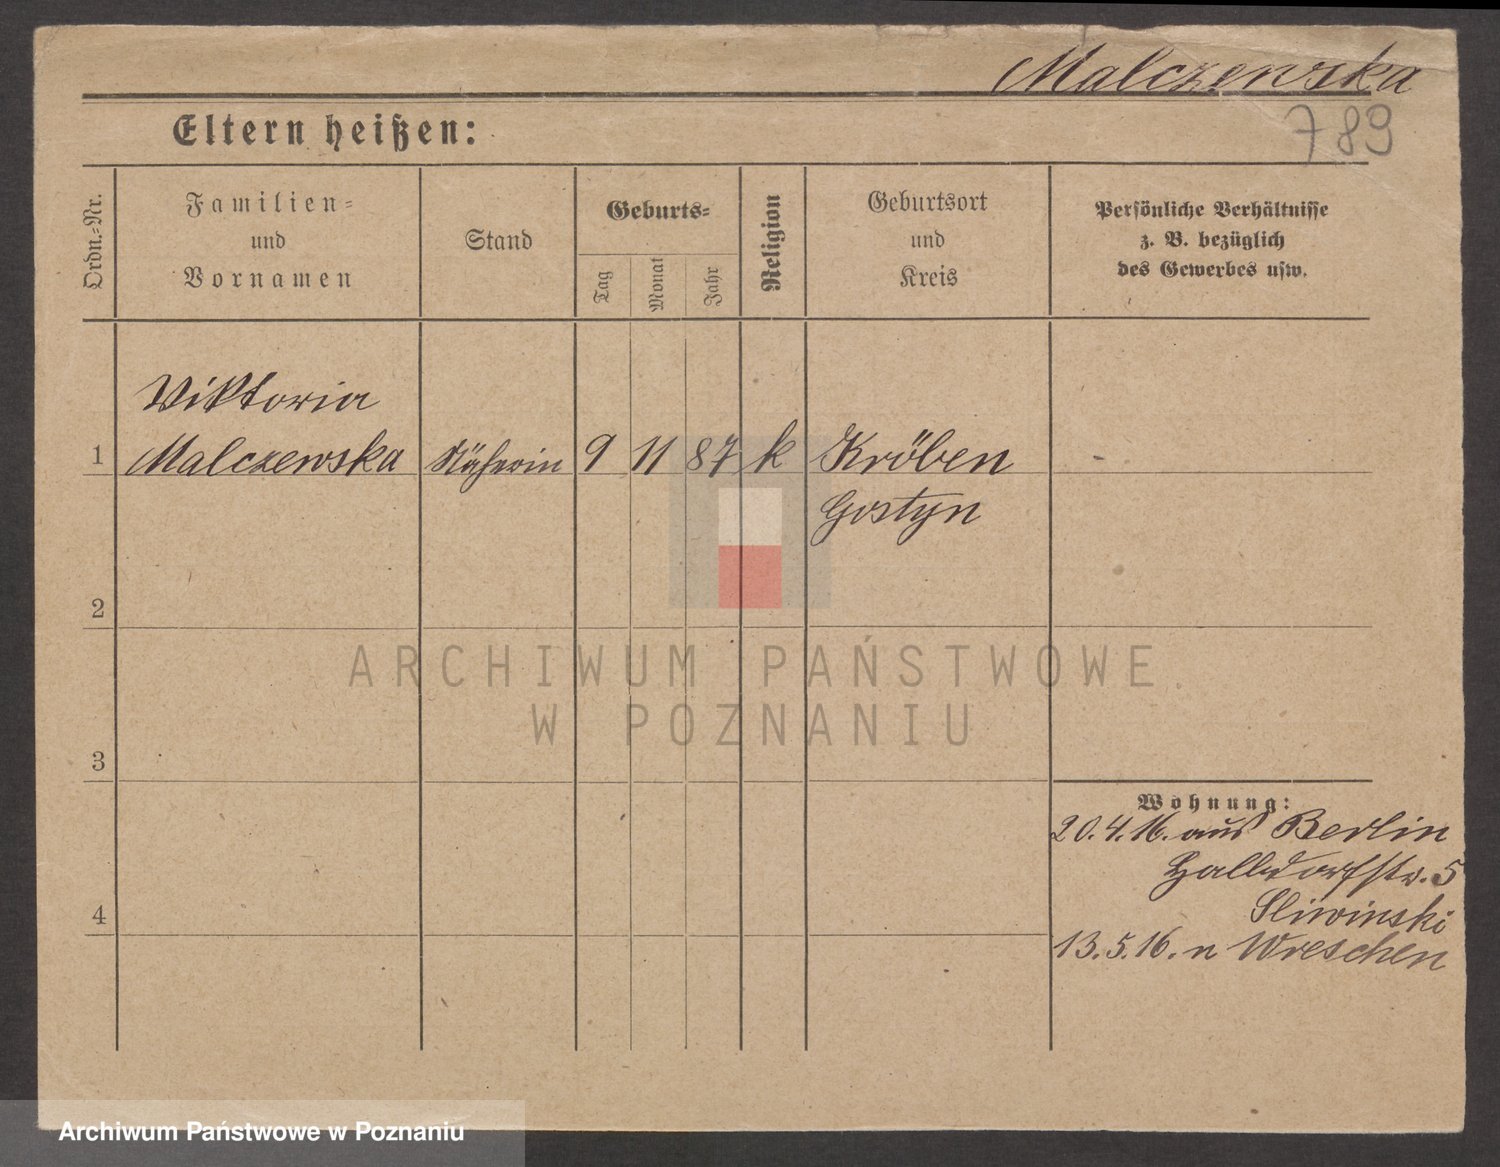 Malczewska
789
Eltern heißen:
Ordn.-Nr.
Familien-
und
Vornamen
Stand
Geburts-
Tag
Monat
Jahr
Religion
Geburtsort
und
Kreis
Persönliche Verhältnisse
z. B. bezüglich
des Gewerbes usw.
Viktoria
1 Malczewska Näherin 9 11 87 k Kröben -
Gostyn
2
ARCHIWUM PAŃSTWOWE
W POZNANIU
3
Wohnung:
20.4.16. aus Berlin
5
Sliwinski
4
13.5.16. n Wreschen
Archiwum Państwowe w Poznaniu